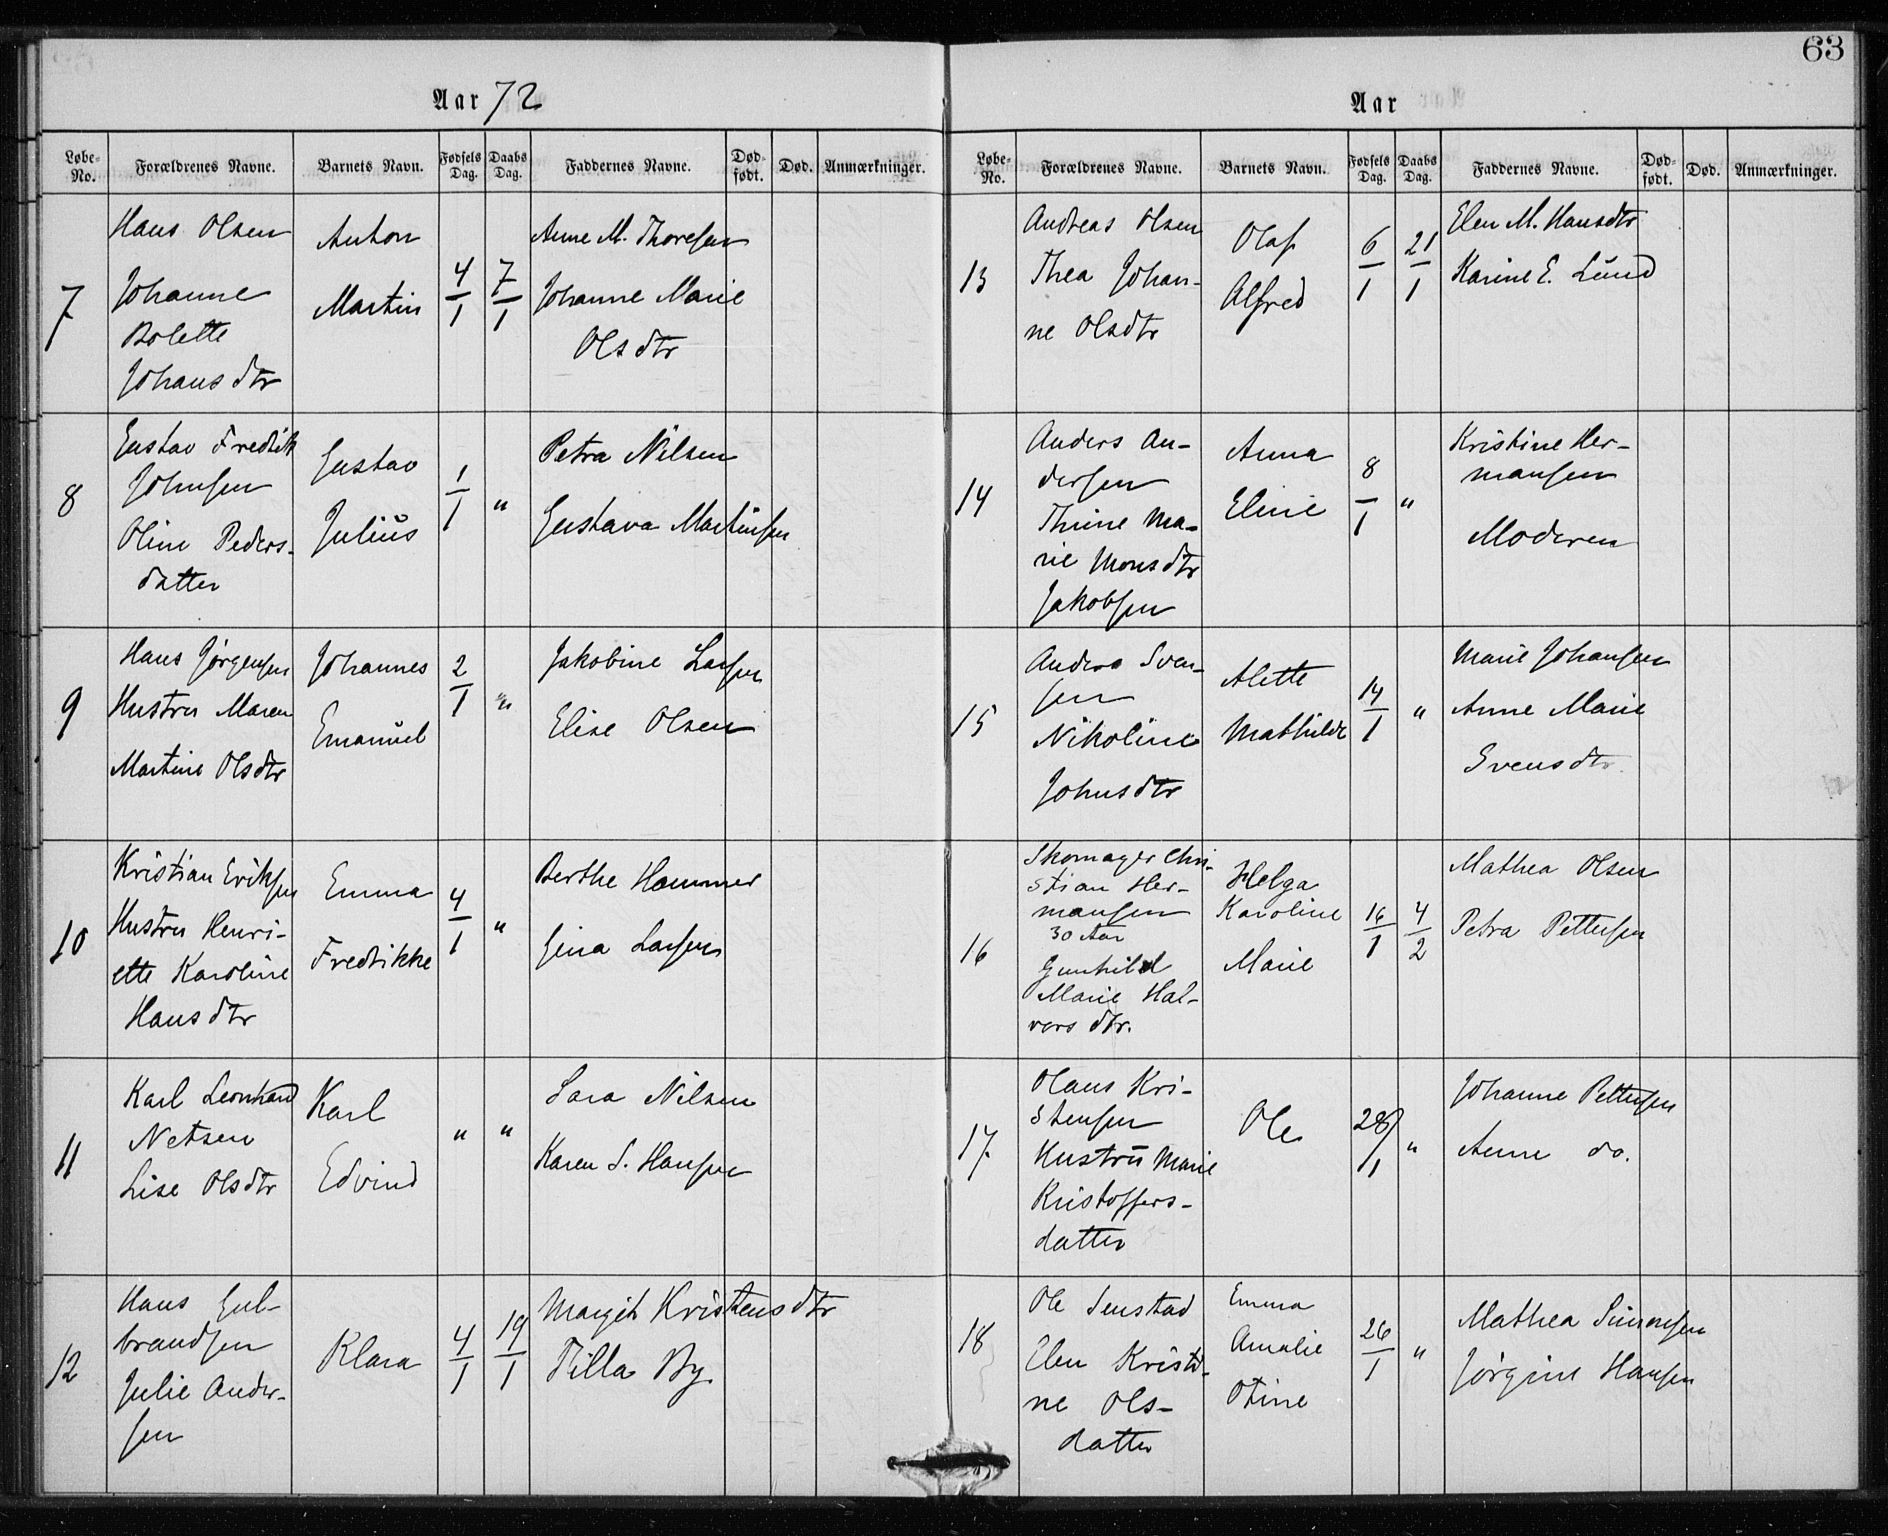 63
Aar 72
Løbe-No. Forældrenes Navne. Barnets Navn. Fødsels Dag. Daabs Dag. Faddernes Navne. Død-født. Død. Anmærkninger.
7
Hans Olsen
Johanne
Bolette
Johansdtr
Anton
Martin
4/1
7/1
Anne M. Thoresen
Johanne Marie
Olsdtr
8
Gustav Fredrik
Johnsen
Oline Peders-
datter
Gustav
Julius
1/1
"
Petra Nilsen
Gustava Martinsen
9
Hans Jørgensen
Hustru Maren
Martine Olsdtr
Johannes
Emanuel
2/1
"
Jakobine Larsen
Elise Olsen
10
Kristian Eriksen
Hustru Henri-
ette Karoline
Hansdtr
Emma
Fredrikke
4/1
"
Berthe Hammer
Gina Larsen
11
Karl Leonhard
Netsen
Lise Olsdtr
Karl
Edvind
"
"
Sara Nilsen
Karen S. Hansen
12
Hans Gul-
brandsen
Julie Ander-
sen
Klara
4/1
19/1
Margit Kristensdtr
Tilla By
Aar
Løbe-No. Forældrenes Navne. Barnets Navn. Fødsels Dag. Daabs Dag. Faddernes Navne. Død-født. Død. Anmærkninger.
13
Andreas Olsen
Thea Johan-
ne Olsdtr
Olaf
Alfred
6/1
21/1
Elen M. Hansdtr
Karine E. Lund
14
Anders An-
dersen
Thrine Ma-
rie Monsdtr
Jakobsen
Anna
Eline
8/1
"
Kristine Her-
mansen
Moderen
15
Anders Sven-
sen
Nikoline
Johnsdtr
Alette
Mathilde
14/1
"
Marie Johansen
Anne Marie
Svensdtr
16
Skomager Chri-
stian Her-
mansen
30 Aar
Gunhild
Marie Hal-
vorsdtr.
Helga
Karoline
Marie
16/1
4/2
Mathea Olsen
Petra Pettersen
17
Olaus Kri-
stensen
Hustru Marie
Kristoffers-
datter
Ole
28/1
"
Johanne Pettersen
Anne do.
18
Ole Senstad
Elen Kristi-
ne Ols-
datter
Emma
Amalie
Otine
26/1
"
Mathea Simonsen
Jørgine Hansen